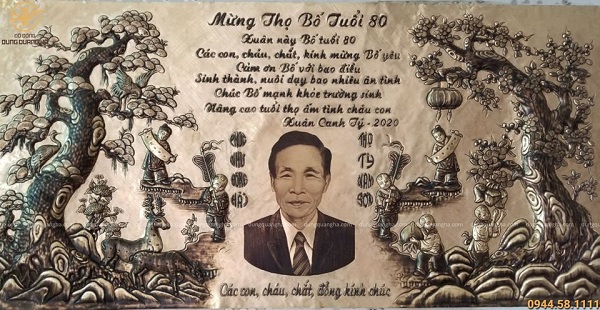 ĐỒ ĐỒNG
DUNG QUANG HÀ
Mừng Thọ Bố Tuổi 80
Xuân này Bố tuổi 80
Các con, cháu, chắt, kính mừng Bố yêu
Cảm ơn Bố với bao điều
Sinh thành, nuôi dạy bao nhiêu ân tình
Chúc Bố mạnh khỏe trường sinh
Nâng cao tuổi thọ ấm tình cháu con
Xuân Canh Tý - 2020
THỌ
TỶ
NAM
SƠN
Các con, cháu, chắt, đồng kính chúc
0944.58.1111